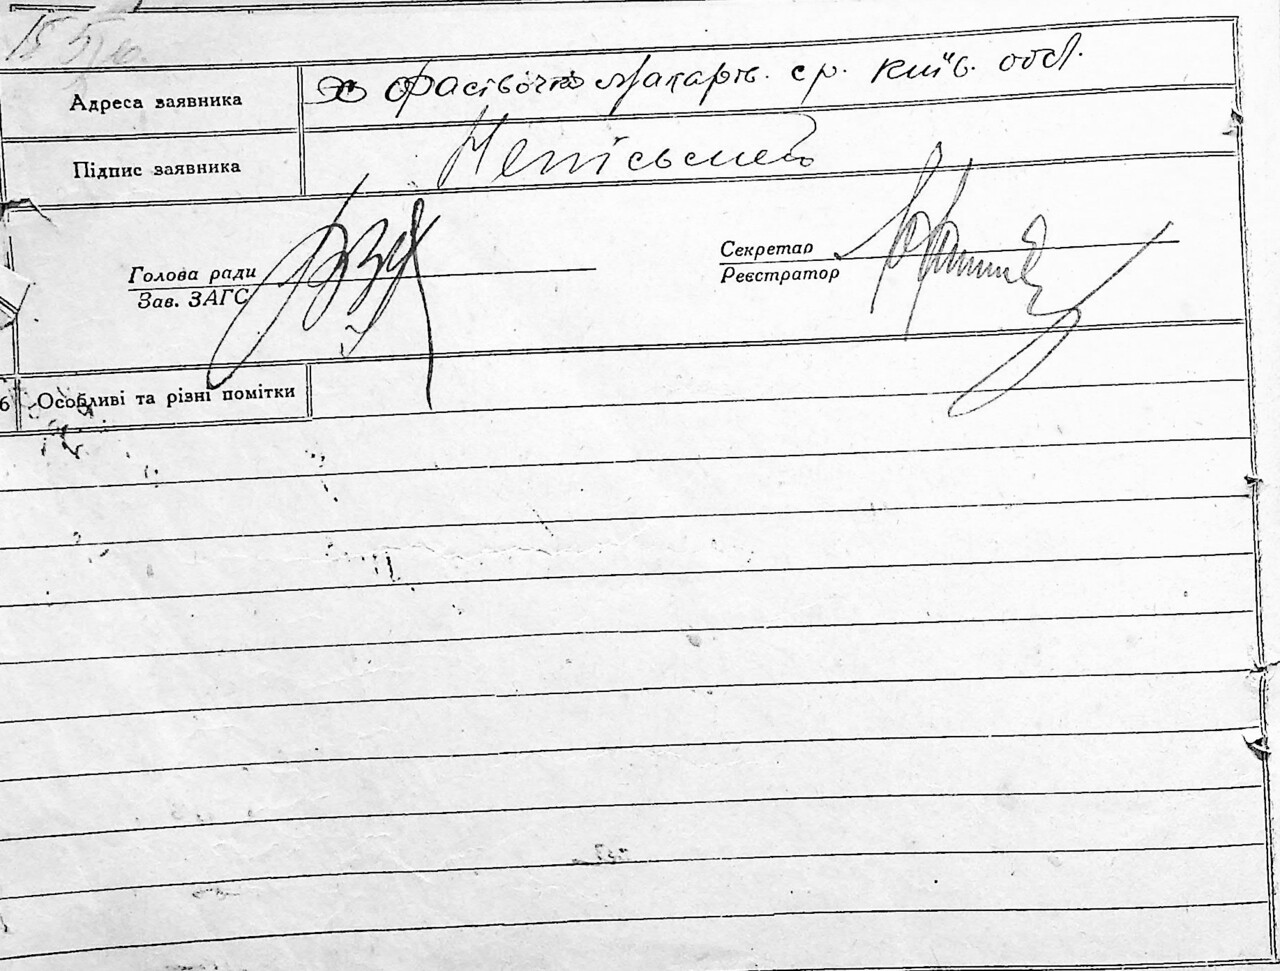 Адреса заявника х Фасівочка Макарів. ср. Київ. обл.
Підпис заявника Неписьмен
Голова ради
Зав. ЗАГС
Секретар
Реєстратор
6 Особливі та різні помітки